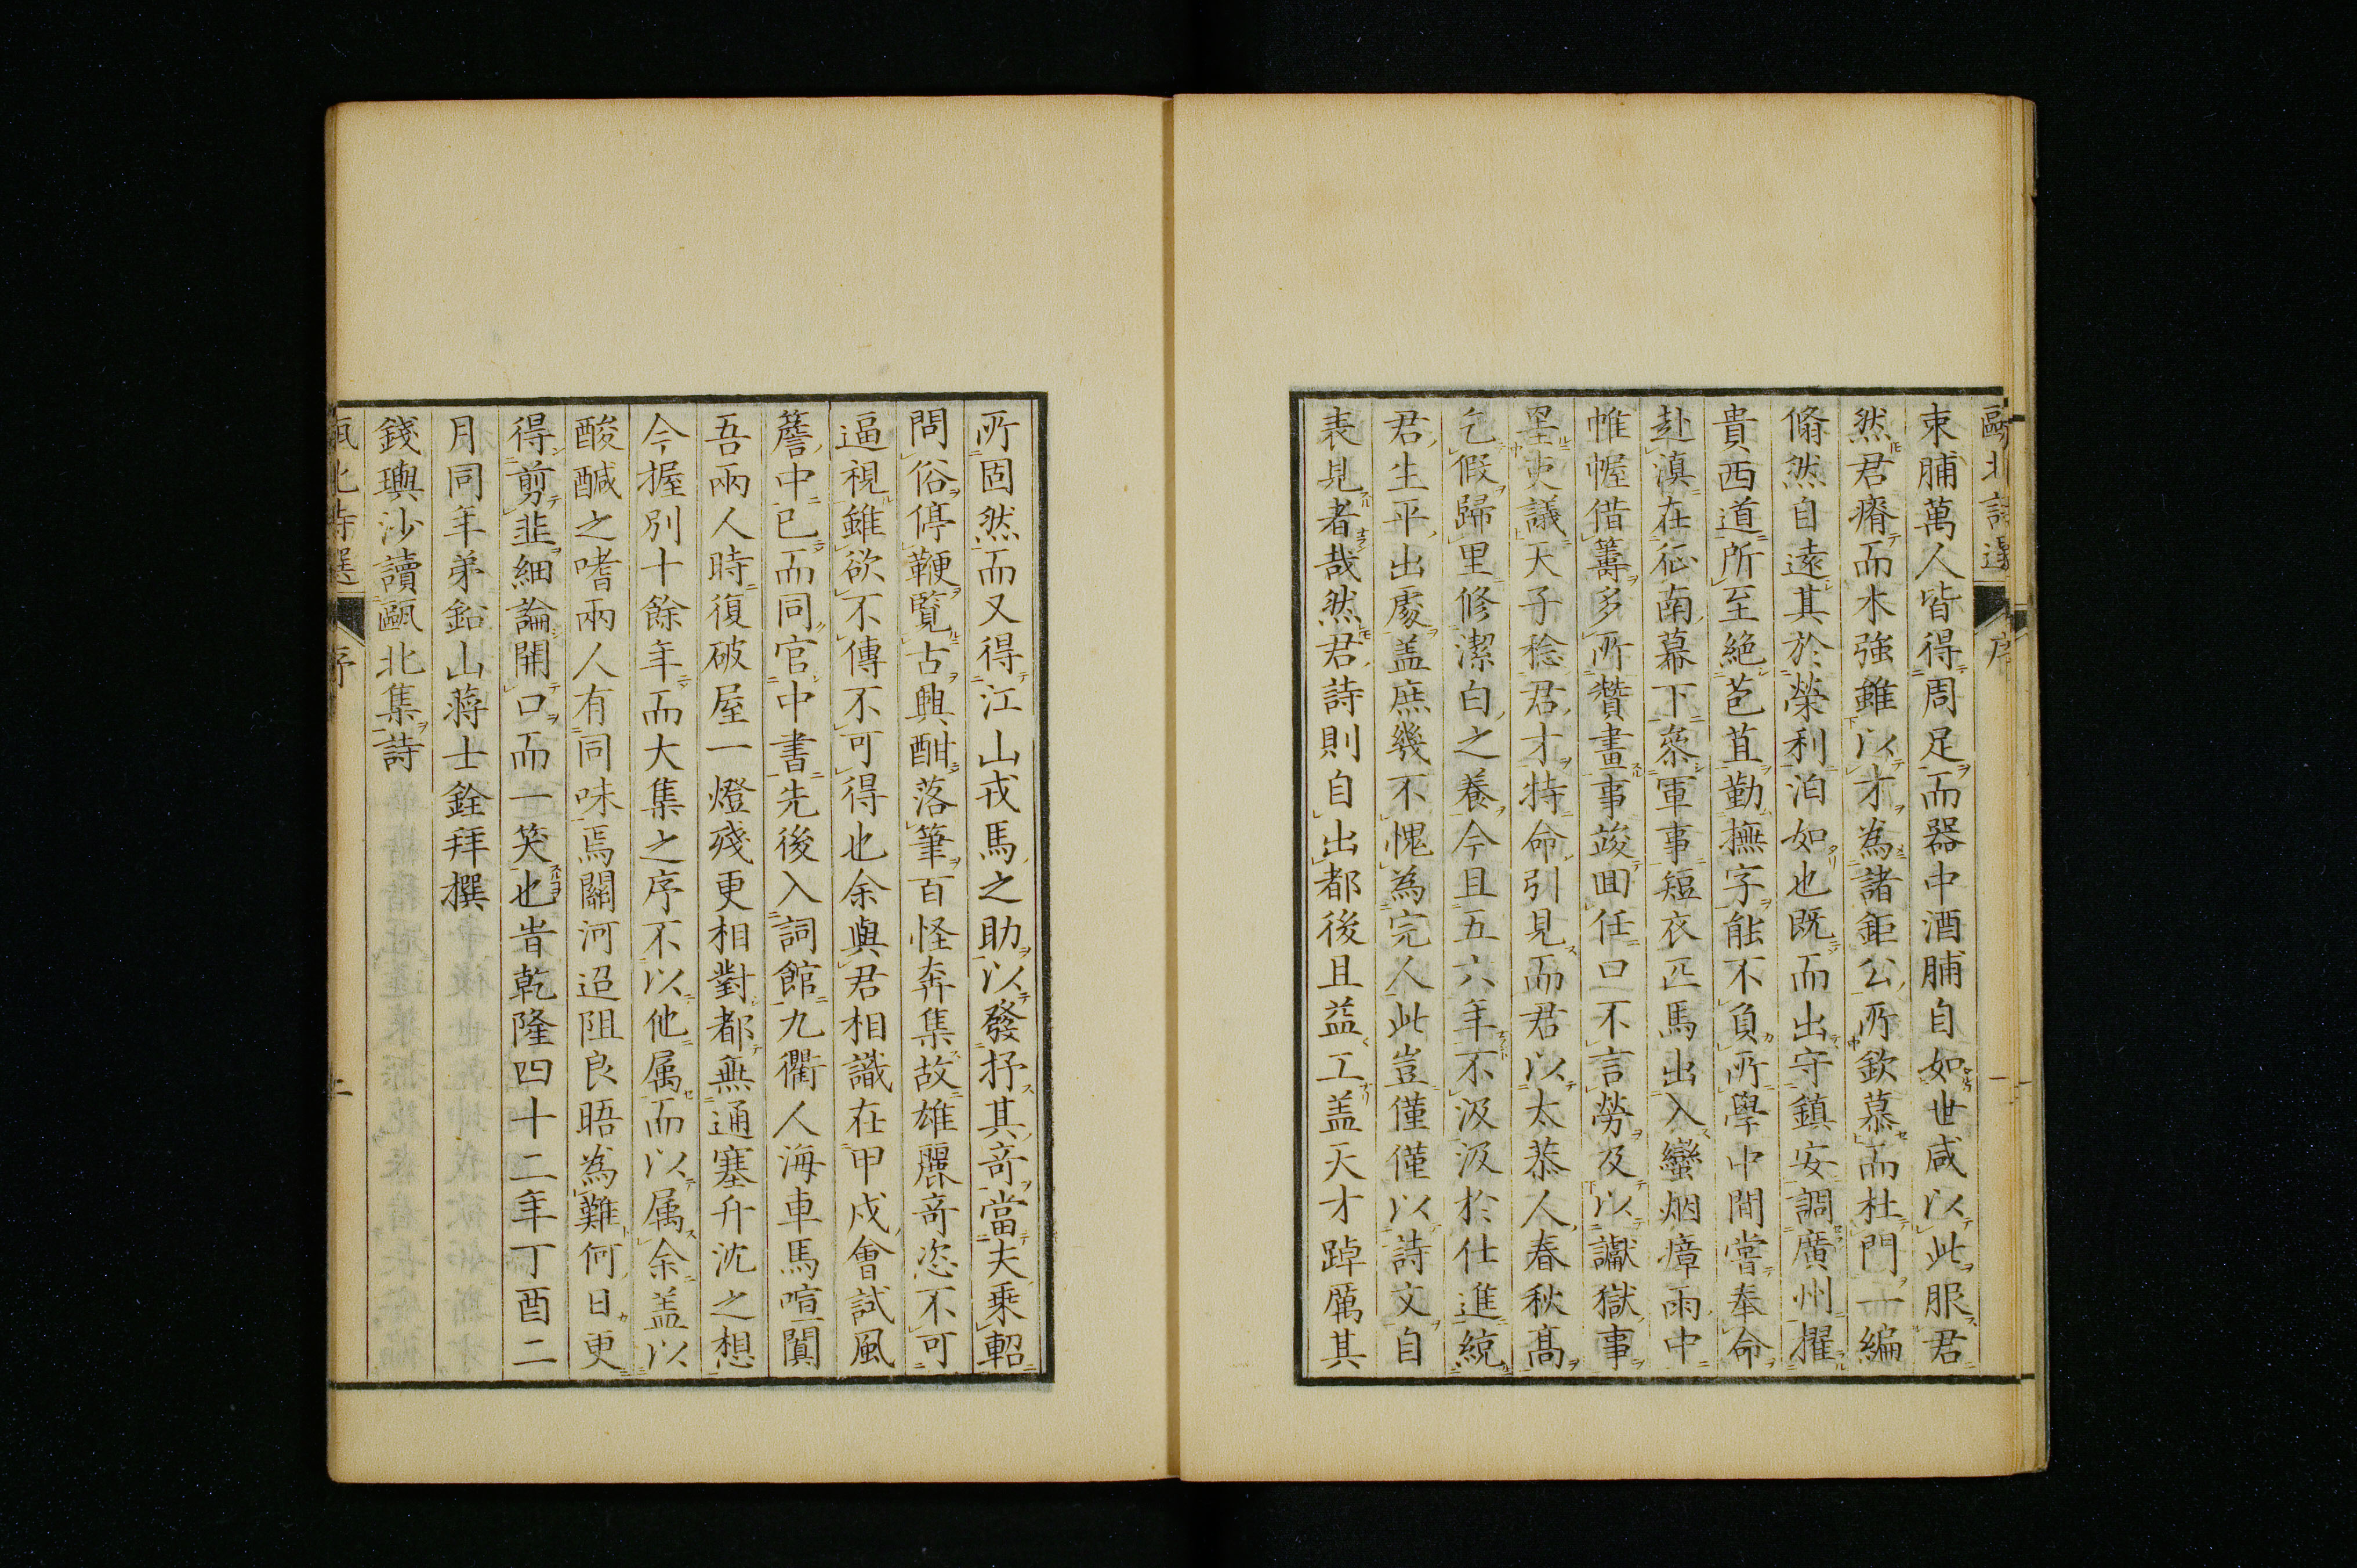 甌北詩選 序
束脯萬人皆得周足而器中酒脯自如世咸以此服君
然君瘠而木強雖以才為諸鉅公所欽慕而杜門一編
翛然自遠其於榮利泊如也既而出守鎮安調廣州擢
貴西道所至絶苞苴勤撫字能不負所學中間嘗奉命
赴滇在征南幕下叅軍事短衣匹馬出入蠻烟瘴雨中
帷幄借籌多所贊畫事竣囬任口不言勞及以讞獄事
罣吏議天子稔君才特命引見而君以太恭人春秋髙
乞假歸里修潔白之養今且五六年不汲汲於仕進綂
君生平出處盖庶幾不愧為完人此豈僅僅以詩文自
表見者哉然君詩則自出都後且益工盖天才踔厲其
所固然而又得江山戎馬之助以發抒其竒當夫乗軺
問俗停鞭覽古興酣落筆百怪奔集故雄麗竒恣不可
逼視雖欲不傳不可得也余與君相識在甲戌會試風
簷中已而同官中書先後入詞館九衢人海車馬喧闐
吾兩人時復破屋一燈殘更相對都無通塞升沈之想
今握別十餘年而大集之序不以他属而以属余盖以
酸醎之嗜兩人有同味焉關河迢阻良晤為難何日更
得剪韭細論開口而一笑也旹乾隆四十二年丁酉二
月同年弟鉛山蔣士銓拜撰
錢璵沙讀甌北集詩
甌北詩選 序 二